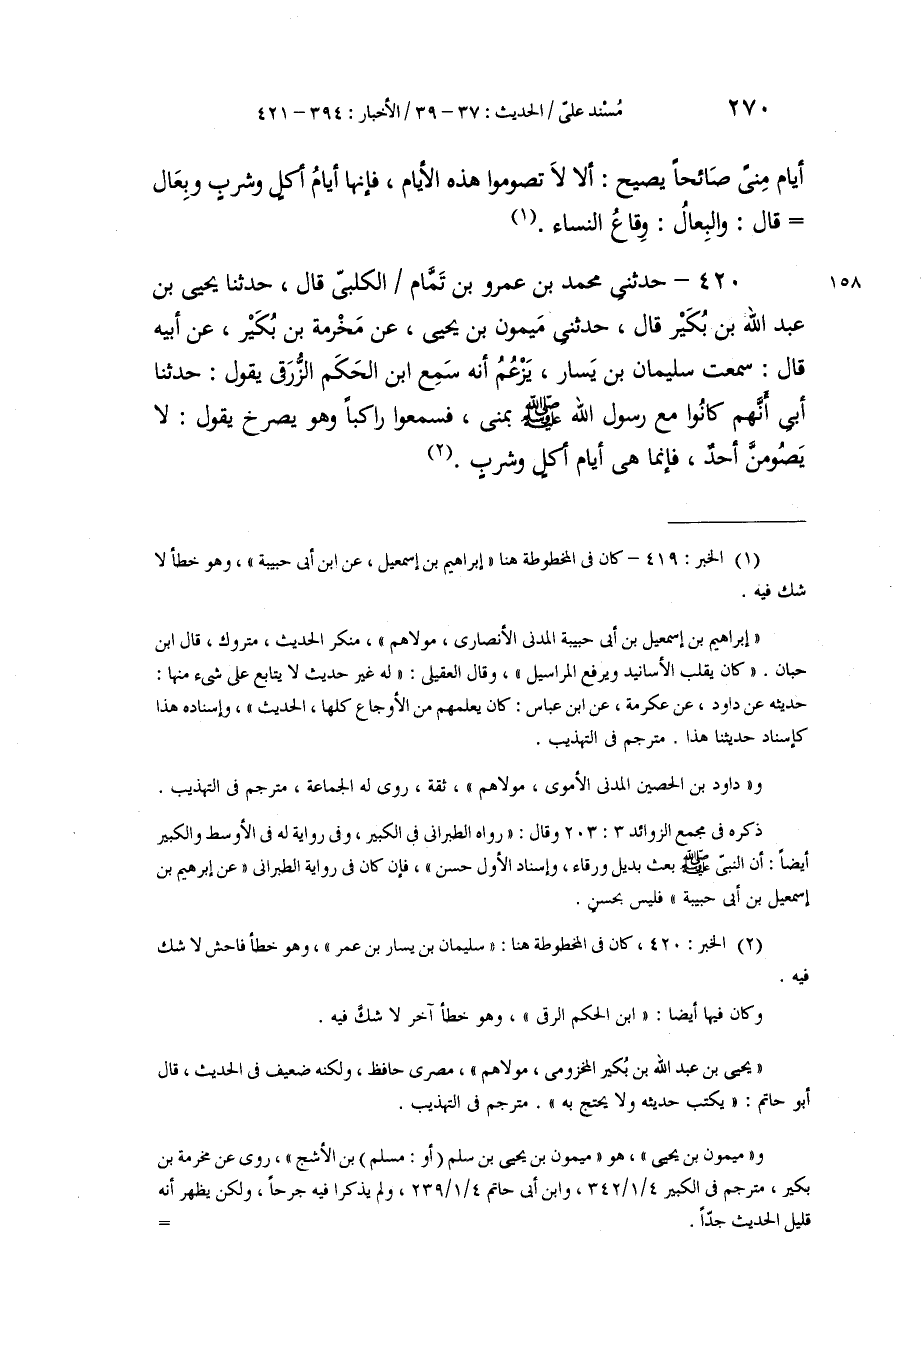 ٢٧٠ مُسْند علىّ / الحديث : ٣٧ – ٣٩ / الأخبار : ٣٩٤ – ٤٢١
أيام مِنىً صَائحاً يصيح : ألا لاَ تصوموا هذه الأيام ، فإنها أيامُ أكلٍ وشربٍ وبِعَال
= قال : والبِعالُ : وِقاعُ النساء .(١)
١٥٨ ٤٢٠ – حدثني محمد بن عمرو بن تَمَّام / الكلبىّ قال ، حدثنا يحيى بن
عبد الله بن بُكَيْر قال ، حدثني مَيمون بن يحيى ، عن مَخْرمة بن بُكَيْر ، عن أبيه
قال : سمعت سليمان بن يَسار ، يَزْعُمُ أنه سَمِع ابن الحَكَم الزُّرَقى يقول : حدثنا
أبي أَنَّهم كانُوا مع رسول الله ﷺ بمنى ، فسمعوا راكباً وهو يصرخ يقول : لا
يَصُومنَّ أحدٌ ، فإنما هى أيام أكلٍ وشربٍ .(٢)
(١) الخبر : ٤١٩ – كان فى المخطوطة هنا « إبراهيم بن إسمعيل ، عن ابن أبى حبيبة » ، وهو خطأ لا
شك فيه .
« إبراهيم بن إسمعيل بن أبى حبيبة المدنى الأنصارى ، مولاهم » ، منكر الحديث ، متروك ، قال ابن
حبان . « كان يقلب الأسانيد ويرفع المراسيل » ، وقال العقيلى : « له غير حديث لا يتابع على شىء منها :
حديثه عن داود ، عن عكرمة ، عن ابن عباس : كان يعلمهم من الأوجاع كلها ، الحديث » ، وإسناده هذا
كإسناد حديثنا هذا . مترجم فى التهذيب .
و« داود بن الحصين المدنى الأموى ، مولاهم » ، ثقة ، روى له الجماعة ، مترجم فى التهذيب .
ذكره فى مجمع الزوائد ٣ : ٢٠٣ وقال : « رواه الطبرانى فى الكبير ، وفى رواية له فى الأوسط والكبير
أيضاً : أن النبىّ ﷺ بعث بديل ورقاء ، وإسناد الأول حسن » ، فإن كان فى رواية الطبرانى « عن إبرهيم بن
إسمعيل بن أبى حبيبة » فليس بحسنٍ .
(٢) الخبر : ٤٢٠ ، كان فى المخطوطة هنا : « سليمان بن يسار بن عمر » ، وهو خطأ فاحش لا شك
فيه .
وكان فيها أيضا : « ابن الحكم الرقى » ، وهو خطأ آخر لا شكَّ فيه .
« يحيى بن عبد الله بن بُكير المخزومى ، مولاهم » ، مصرى حافظ ، ولكنه ضعيف فى الحديث ، قال
أبو حاتم : « يكتب حديثه ولا يحتج به » . مترجم فى التهذيب .
و« ميمون بن يحيى » ، هو « ميمون بن يحيى بن سلم ( أو : مسلم ) بن الأشج » ، روى عن مخرمة بن
بكير ، مترجم فى الكبير ٣٤٢/١/٤ ، وابن أبى حاتم ٢٣٩/١/٤ ، ولم يذكرا فيه جرحاً ، ولكن يظهر أنه
قليل الحديث جدّاً . =